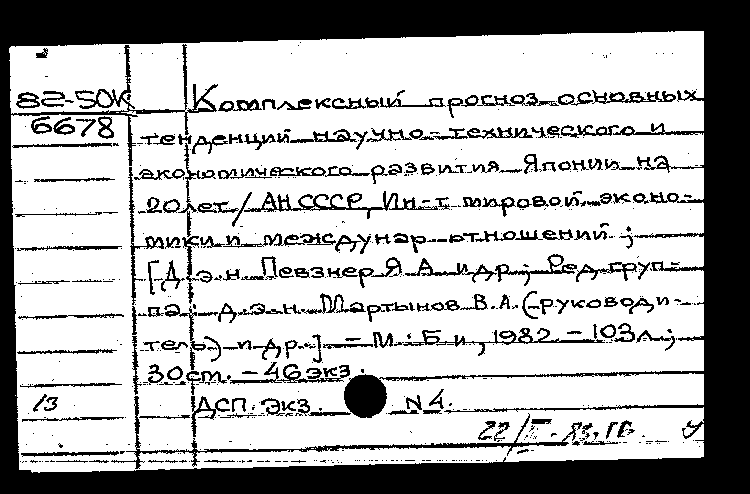 82-50К
6678
Комплексный прогноз основных
тенденций научно-технического и
экономического развития Японии на
20 лет / АН СССР, Ин-т мировой эконо-
мики и междунар отношений ;
[Д э.н. Певзнер Я А и др ; Ред груп-
па : д.э.н. Мартынов В.А. (руководи-
тель) и др.] - М : Б и, 1982. - 103л ;
30 ст. - 46 экз.
13 ДСП. Экз. N 4.
22/